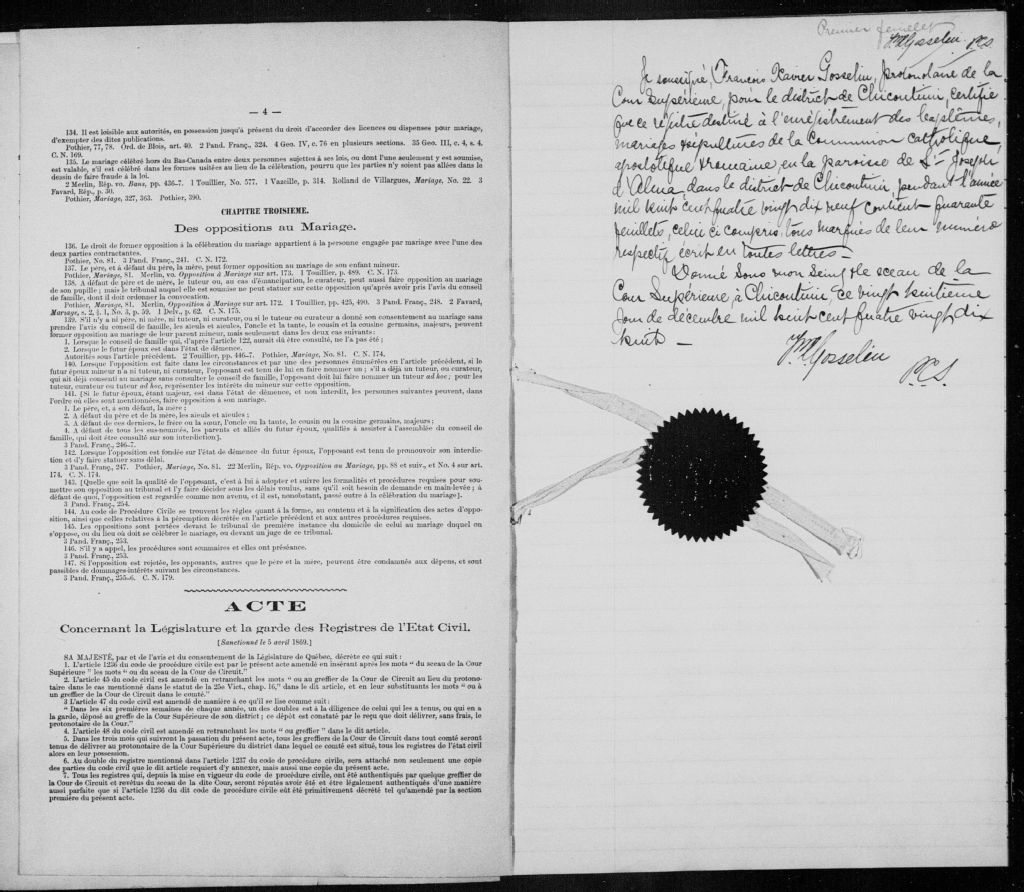 — 4 —
134. Il est loisible aux autorités, en possession jusqu'à présent du droit d'accorder des licences ou dispenses pour mariage,
d'exempter des dites publications.
Pothier, 77, 78. Ord. de Blois, art. 40. 2 Pand. Franç., 324. 4 Geo. IV, c. 76 en plusieurs sections. 35 Geo. III, c. 4, s. 4.
C. N. 169.
135. Le mariage célébré hors du Bas-Canada entre deux personnes sujettes à ses lois, ou dont l'une seulement y est soumise,
est valable, s'il est célébré dans les formes usitées au lieu de la célébration, pourvu que les parties n'y soient pas allées dans le
dessin de faire fraude à la loi.
2 Merlin, Rép. vo. Bans, pp. 436-7. 1 Touillier, No. 577. 1 Vazeille, p. 314. Rolland de Villargues, Mariage, No. 22. 3
Favard, Rép., p. 50.
Pothier, Mariage, 327, 363. Pothier, 390.
CHAPITRE TROISIEME.
Des oppositions au Mariage.
136. Le droit de former opposition à la célébration du mariage appartient à la personne engagée par mariage avec l'une des
deux parties contractantes.
Pothier, No. 81. 3 Pand. Franç., 241. C. N. 172.
137. Le père, et à défaut du père, la mère, peut former opposition au mariage de son enfant mineur.
Pothier, Mariage, 81. Merlin, vo. Opposition à Mariage sur art. 173. 1 Touillier, p. 489. C. N. 173.
138. A défaut de père et de mère, le tuteur ou, au cas d'émancipation, le curateur, peut aussi faire opposition au mariage
de son pupille ; mais le tribunal auquel elle est soumise ne peut statuer sur cette opposition qu'après avoir pris l'avis du conseil
de famille, dont il doit ordonner la convocation.
Pothier, Mariage, 81. Merlin, Opposition à Mariage sur art. 172. 1 Touillier, pp. 425, 490. 3 Pand. Franç., 248. 2 Favard,
Mariage, s. 2, § 1, No. 3, p. 59. 1 Delv., p. 62. C. N. 175.
139. S'il n'y a ni père, ni mère, ni tuteur, ni curateur, ou si le tuteur ou curateur a donné son consentement au mariage sans
prendre l'avis du conseil de famille, les aïeuls et aïeules, l'oncle et la tante, le cousin et la cousine germains, majeurs, peuvent
former opposition au mariage de leur parent mineur, mais seulement dans les deux cas suivants:
1. Lorsque le conseil de famille qui, d'après l'article 122, aurait dû être consulté, ne l'a pas été ;
2. Lorsque le futur époux est dans l'état de démence.
Autorités sous l'article précédent. 2 Touillier, pp. 446-7. Pothier, Mariage, No. 81. C. N. 174.
140. Lorsque l'opposition est faite dans les circonstances et par une des personnes énumérées en l'article précédent, si le
futur époux mineur n'a ni tuteur, ni curateur, l'opposant est tenu de lui en faire nommer un ; s'il a déjà un tuteur, ou curateur,
qui ait déjà consenti au mariage sans consulter le conseil de famille, l'opposant doit lui faire nommer un tuteur ad hoc ; pour les
tuteur, curateur ou tuteur ad hoc, représenter les intérêts du mineur sur cette opposition.
141. [Si le futur époux, étant majeur, est dans l'état de démence, et non interdit, les personnes suivantes peuvent, dans
l'ordre où elles sont mentionnées, faire opposition à son mariage.
1. Le père, et, à son défaut, la mère ;
2. A défaut du père et de la mère, les aïeuls et aïeules ;
3. A défaut de ces derniers, le frère ou la sœur, l'oncle ou la tante, le cousin ou la cousine germains, majeurs ;
4. A défaut de tous les sus-nommés, les parents et alliés du futur époux, qualifiés à assister à l'assemblée du conseil de
famille, qui doit être consulté sur son interdiction].
3 Pand. Franç., 246-7.
142. Lorsque l'opposition est fondée sur l'état de démence du futur époux, l'opposant est tenu de promouvoir son interdic-
tion et d'y faire statuer sans délai.
3 Pand. Franç., 247. Pothier, Mariage, No. 81. 22 Merlin, Rép. vo. Opposition au Mariage, pp. 88 et suiv., et No. 4 sur art.
174. C. N. 174.
143. [Quelle que soit la qualité de l'opposant, c'est à lui à adopter et suivre les formalités et procédures requises pour sou-
mettre son opposition au tribunal et l'y faire décider sous les délais voulus, sans qu'il soit besoin de demande en main-levée ; à
défaut de quoi, l'opposition est regardée comme non avenu, et il est, nonobstant, passé outre à la célébration du mariage].
3 Pand. Franç., 254.
144. Au code de Procédure Civile se trouvent les règles quant à la forme, au contenu et à la signification des actes d'oppo-
sition, ainsi que celles relatives à la péremption décrétée en l'article précédent et aux autres procédures requises.
145. Les oppositions sont portées devant le tribunal de première instance du domicile de celui au mariage duquel on
s'oppose, ou du lieu où doit se célébrer le mariage, ou devant un juge de ce tribunal.
3 Pand. Franç., 253.
146. S'il y a appel, les procédures sont sommaires et elles ont préséance.
3 Pand. Franç., 253.
147. Si l'opposition est rejetée, les opposants, autres que le père et la mère, peuvent être condamnés aux dépens, et sont
passibles de dommages-intérêts suivant les circonstances.
3 Pand. Franç., 255-6. C. N. 179.
ACTE
Concernant la Législature et la garde des Registres de l'Etat Civil.
[Sanctionné le 5 avril 1869.]
SA MAJESTÉ, par et de l'avis et du consentement de la Législature de Québec, décrète ce qui suit :
1. L'article 1236 du code de procédure civile est par le présent acte amendé en insérant après les mots " du sceau de la Cour
Supérieure " les mots " ou du sceau de la Cour de Circuit."
2. L'article 45 du code civil est amendé en retranchant les mots " ou au greffier de la Cour de Circuit au lieu du protono-
taire dans le cas mentionné dans le statut de la 25e Vict., chap. 16," dans le dit article, et en leur substituants les mots " ou à
un greffier de la Cour de Circuit dans le comté."
3 L'article 47 du code civil est amendé de manière à ce qu'il se lise comme suit:
" Dans les six premières semaines de chaque année, un des doubles est à la diligence de celui qui les a tenus, ou qui en a
la garde, déposé au greffe de la Cour Supérieure de son district ; ce dépôt est constaté par le reçu que doit délivrer, sans frais, le
protonotaire de la Cour."
4. L'article 48 du code civil est amendé en retranchant les mots " ou greffier " dans le dit article.
5. Dans les trois mois qui suivront la passation du présent acte, tous les greffiers de la Cour de Circuit dans tout comté seront
tenus de délivrer au protonotaire de la Cour Supérieure du district dans lequel ce comté est situé, tous les registres de l'état civil
alors en leur possession.
6. Au double du registre mentionné dans l'article 1237 du code de procédure civile, sera attaché non seulement une copie
des parties du code civil que le dit article requiert d'y annexer, mais aussi une copie du présent acte.
7. Tous les registres qui, depuis la mise en vigueur du code de procédure civile, ont été authentiqués par quelque greffier de
la Cour de Circuit et revêtus du sceau de la dite Cour, seront réputés avoir été et être légalement authentiqués d'une manière
aussi parfaite que si l'article 1236 du dit code de procédure civile eût été primitivement décrété tel qu'amendé par la section
première du présent acte.
Premier feuillet
F. X. Gosselin P.C.S.
Je soussigné, François Xavier Gosselin, protonotaire de la
Cour Supérieure, pour le district de Chicoutimi, certifie
que ce registre destiné à l'enregistrement des baptêmes,
mariages & sépultures de la Communion catholique,
apostolique & romaine, en la paroisse de St Joseph
d'Alma, dans le district de Chicoutimi, pendant l'année
mil huit cent quatre vingt dix neuf contient quarante
feuillets, celui ci compris, tous marqués de leur numéro
respectif écrit en toutes lettres –
Donné sous mon seing & le sceau de la
Cour Supérieure, à Chicoutimi, ce vingt huitième
jour de décembre mil huit cent quatre vingt dix
huit –
F. X. Gosselin
P.C.S.